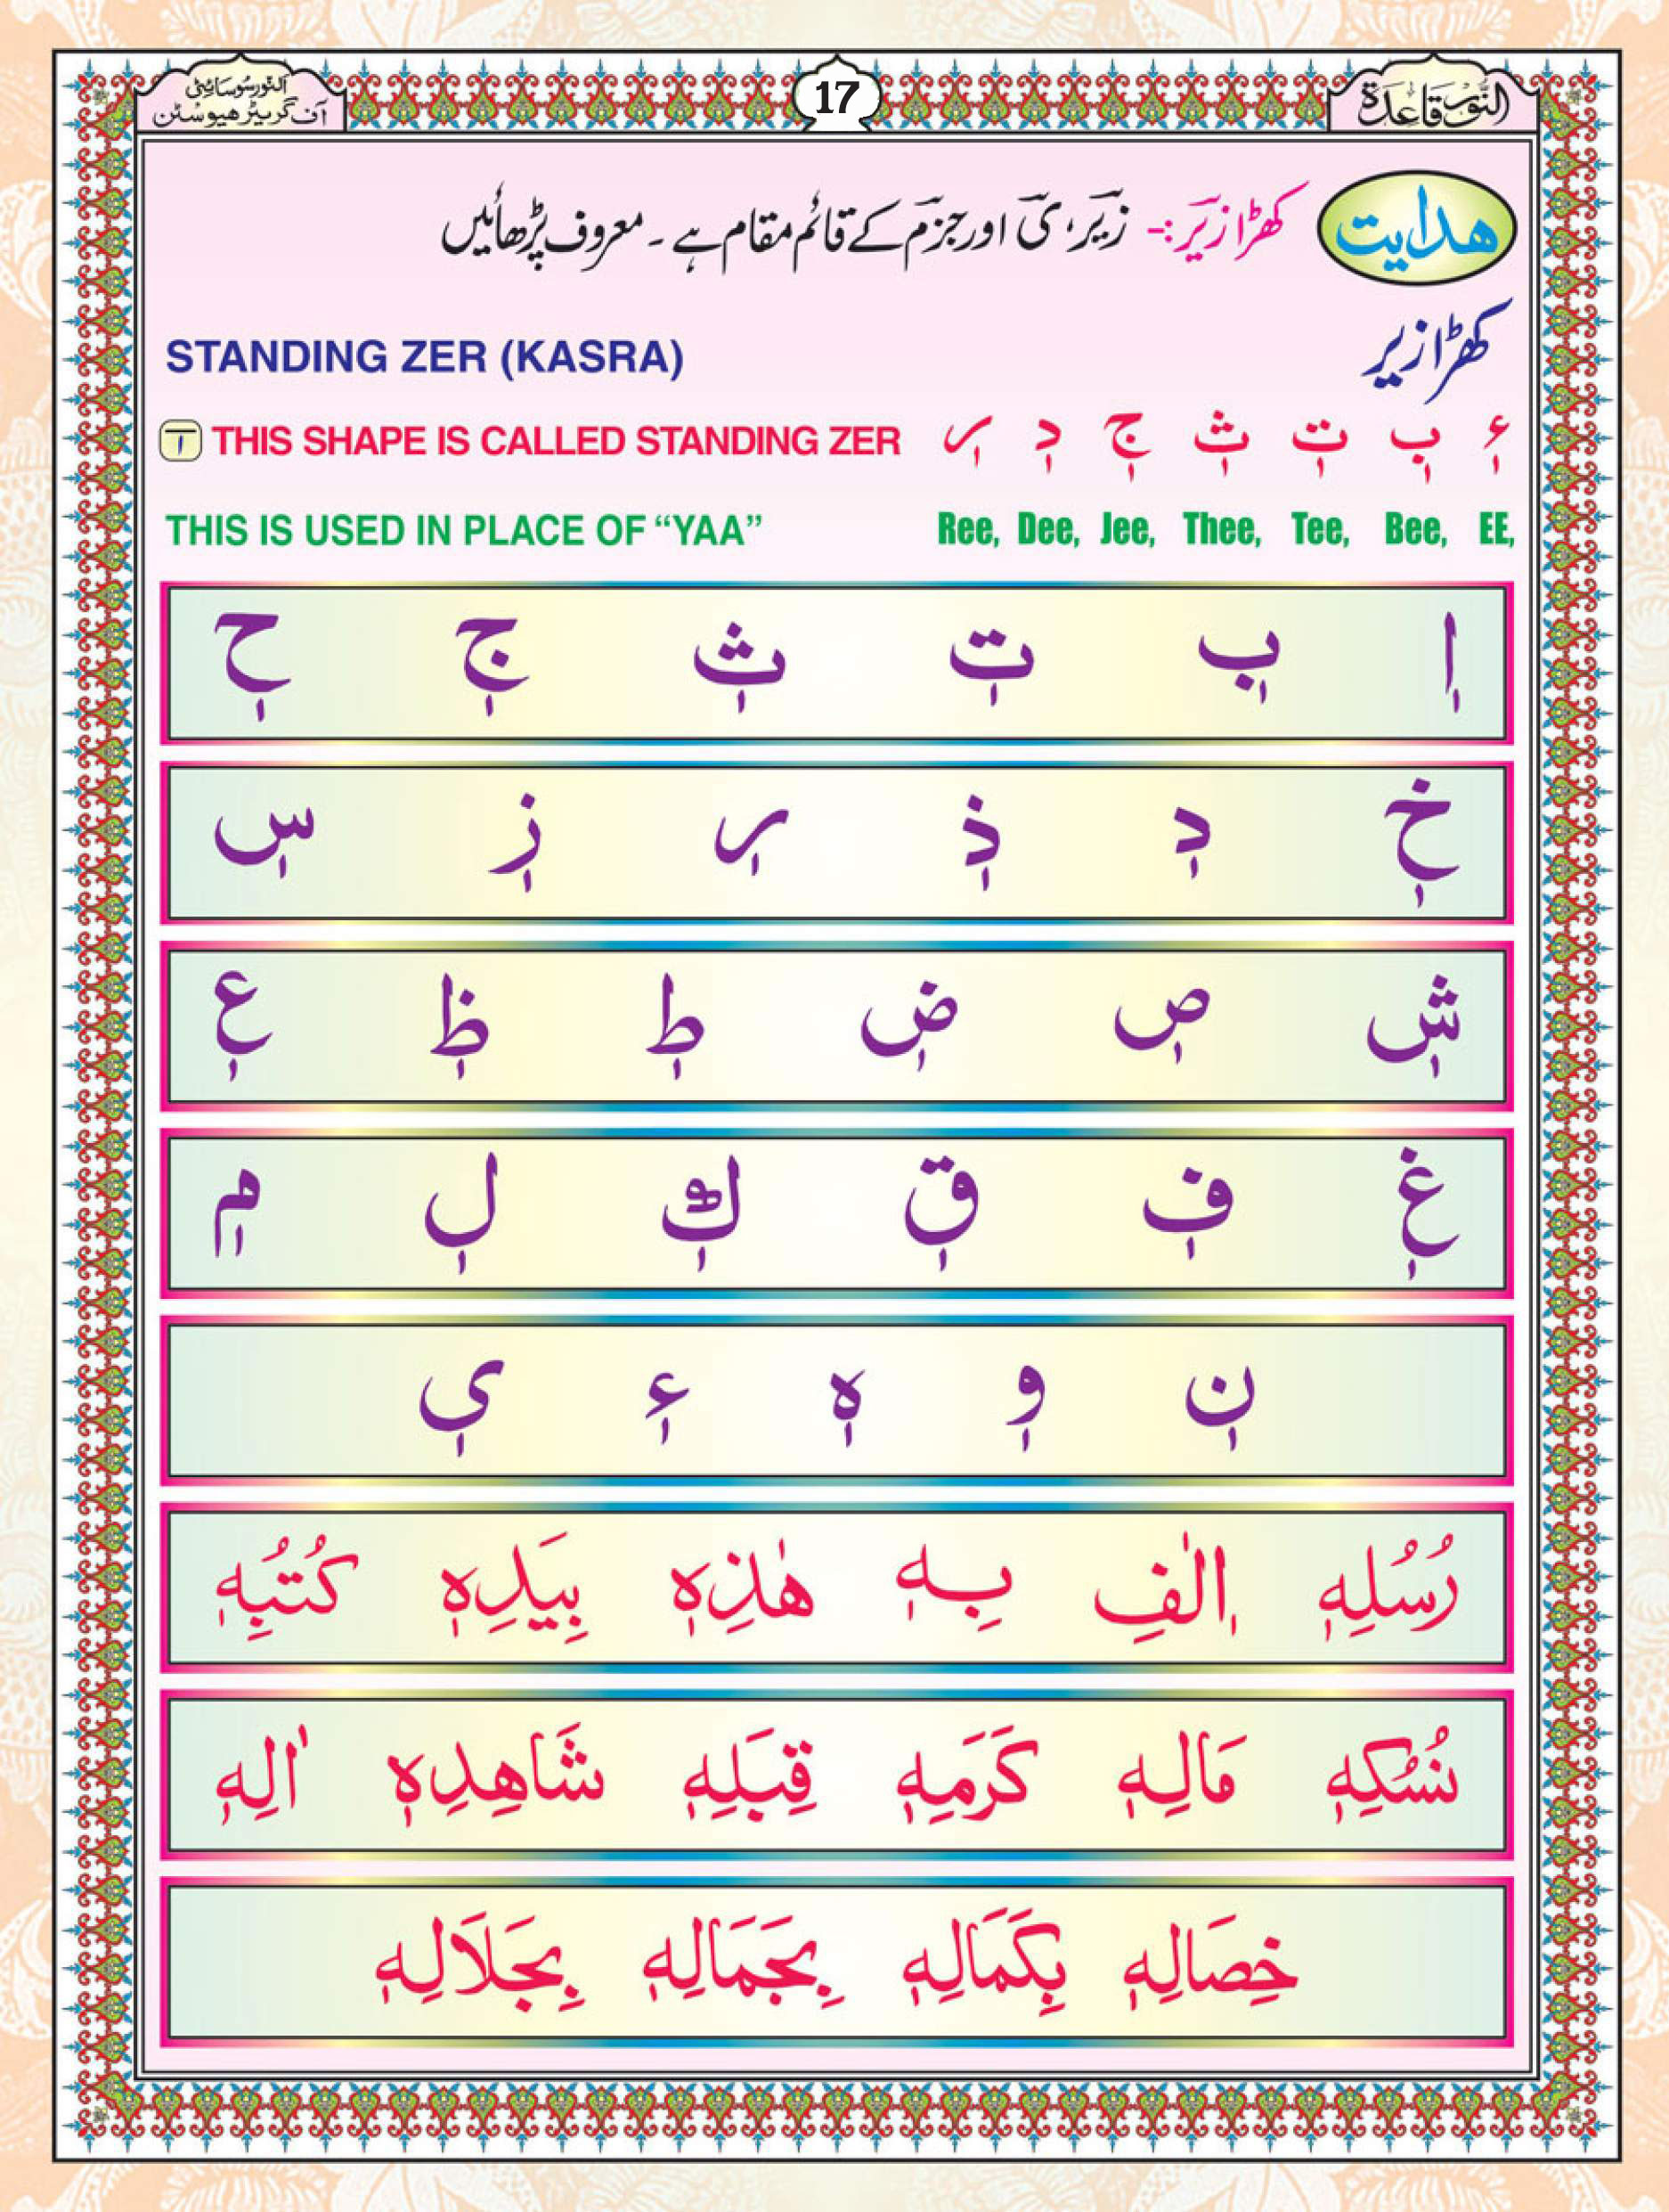 النُّور قَاعِدَة
17
اَلنّور سُوسَائِٹی
آف گریٹر هیوسٹن
ھدایت
کھڑا زیر :- زیر، ی اور جزم کے قائم مقام ہے ۔ معروف پڑھائیں
کھڑا زیر
STANDING ZER (KASRA)
THIS SHAPE IS CALLED STANDING ZER
ءٖ بٖ تٖ ثٖ جٖ دٖ رٖ
THIS IS USED IN PLACE OF “YAA”
Ree, Dee, Jee, Thee, Tee, Bee, EE,
اٖ بٖ تٖ ثٖ جٖ حٖ
خٖ دٖ ذٖ رٖ زٖ سٖ
شٖ صٖ ضٖ طٖ ظٖ عٖ
غٖ فٖ قٖ كٖ لٖ مٖ
نٖ وٖ هٖ ءٖ یٖ
رُسُلِهٖ اٖلٰفِ بِهٖ هٰذِهٖ بِيَدِهٖ كُتُبِهٖ
نُسُكِهٖ مَالِهٖ كَرَمِهٖ قِبَلِهٖ شَاهِدِهٖ اٰلِهٖ
خِصَالِهٖ بِكَمَالِهٖ بِجَمَالِهٖ بِجَلَالِهٖ